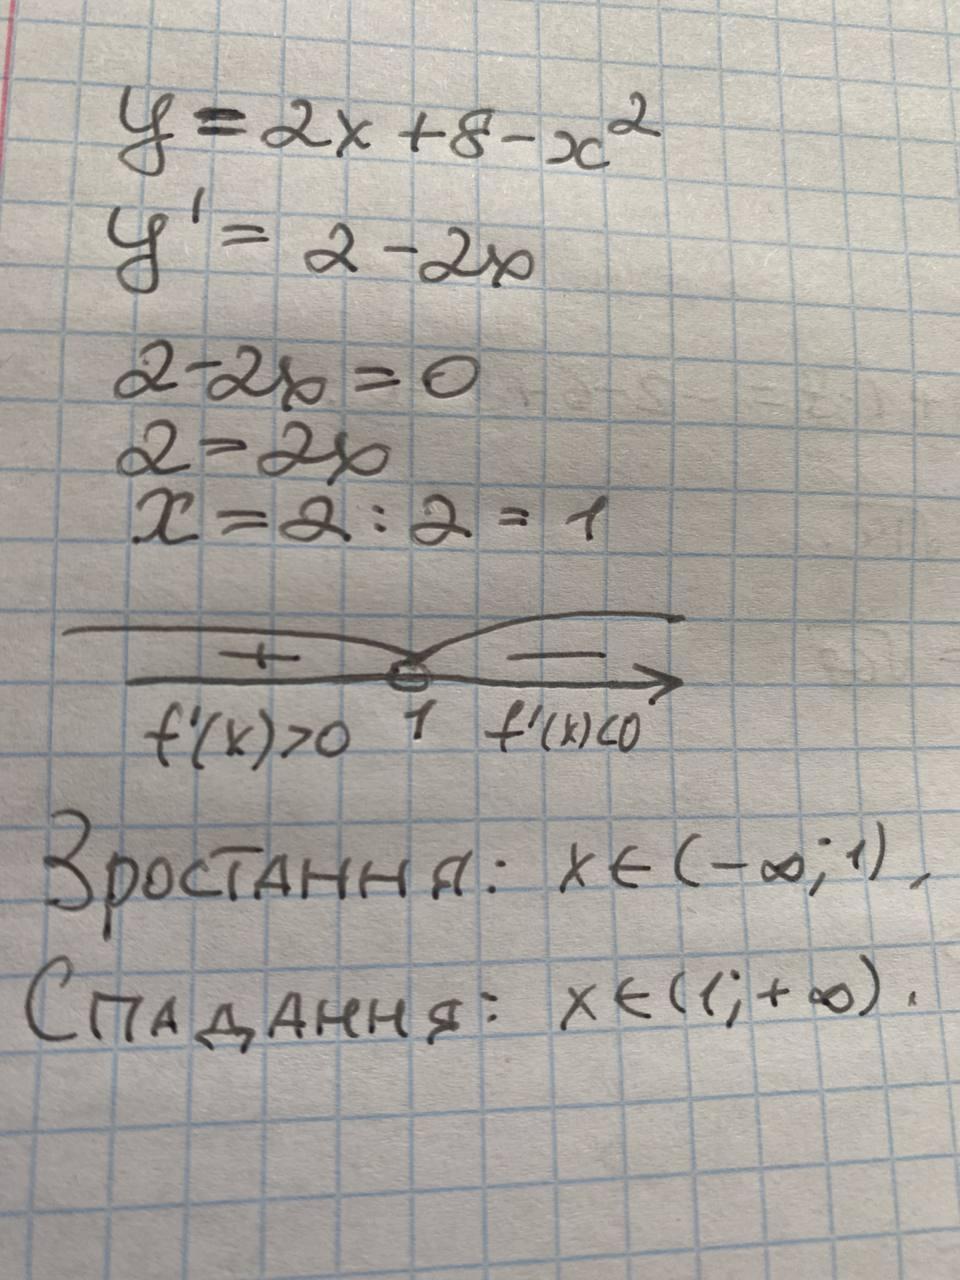 y = 2x + 8 - x²
y' = 2 - 2x
2 - 2x = 0
2 = 2x
x = 2 : 2 = 1
+ —
f'(x)>0 1 f'(x)<0
Зростання: x ∈ (-∞; 1),
Спадання: x ∈ (1; +∞).